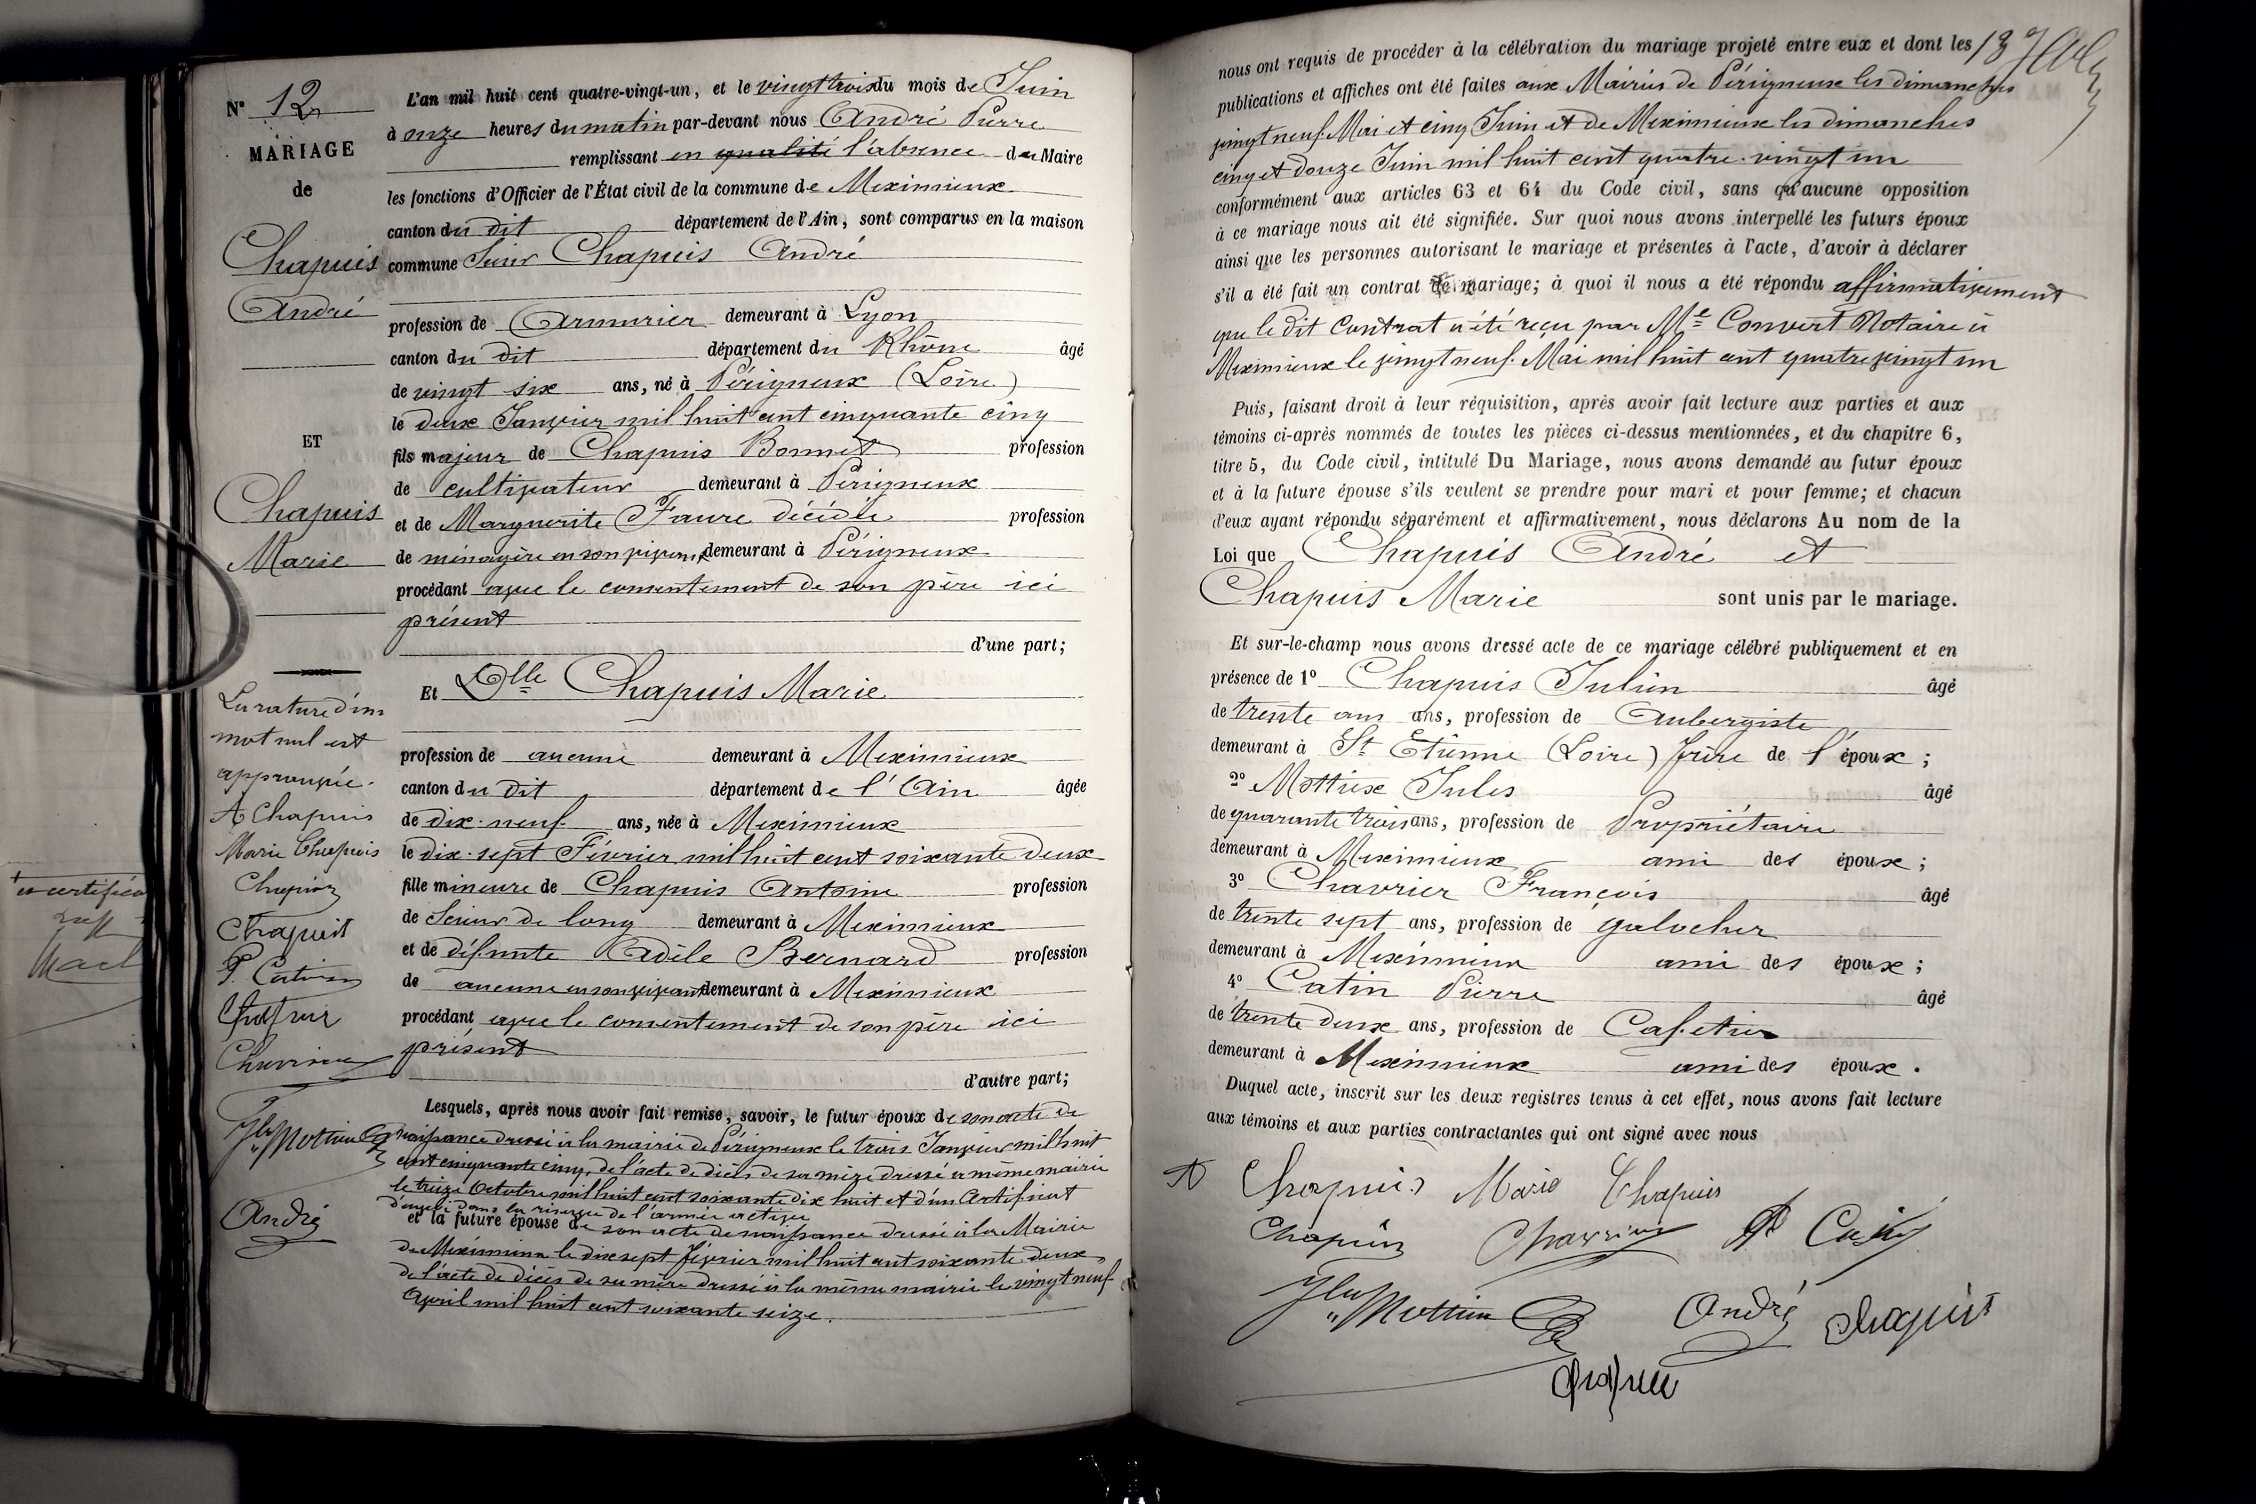 N° 12
MARIAGE
de
Chapuis
André
ET
Chapuis
Marie
La rature d'un
mot nul est
approuvée.
A Chapuis
Marie Chapuis
Chapuis
Chapuis
P. Catin
Chavrier
Jles Mottieux
André
L'an mil huit cent quatre-vingt-un, et le vingt trois du mois de Juin
à onze heures du matin par-devant nous André Pierre
remplissant en qualité l'absence du Maire
les fonctions d'Officier de l'État civil de la commune de Meximieux
canton du dit département de l'Ain, sont comparus en la maison
commune Sieur Chapuis André
profession de Armurier demeurant à Lyon
canton du dit département du Rhône âgé
de vingt six ans, né à Périgneux (Loire)
le deux Janvier mil huit cent cinquante cinq
fils majeur de Chapuis Bonnet profession
de cultivateur demeurant à Périgneux
et de Marguerite Faure décédée profession
de ménagère en son vivant demeurant à Périgneux
procédant avec le consentement de son père ici
présent
d'une part;
Et Dlle Chapuis Marie
profession de aucune demeurant à Meximieux
canton du dit département de l'Ain âgée
de dix-neuf ans, née à Meximieux
le dix-sept Février mil huit cent soixante deux
fille mineure de Chapuis Antoine profession
de Scieur de long demeurant à Meximieux
et de défunte Adèle Bernard profession
de aucune en son vivant demeurant à Meximieux
procédant avec le consentement de son père ici
présent
d'autre part;
Lesquels, après nous avoir fait remise, savoir, le futur époux de son acte de
naissance dressé à la mairie de Périgneux le trois Janvier mil huit
cent cinquante cinq, de l'acte de décès de sa mère dressé à même mairie
le treize Octobre mil huit cent soixante dix huit et d'un Certificat
d'envoi dans la réserve de l'armée active
et la future épouse de son acte de naissance dressé à la Mairie
de Meximieux le dix sept Février mil huit cent soixante deux
de l'acte de décès de sa mère dressé à la même mairie le vingt neuf
Avril mil huit cent soixante seize.
13
nous ont requis de procéder à la célébration du mariage projeté entre eux et dont les
publications et affiches ont été faites aux Mairies de Périgneux les dimanches
vingt neuf Mai et cinq Juin et de Meximieux les dimanches
cinq et douze Juin mil huit cent quatre-vingt un
conformément aux articles 63 et 64 du Code civil, sans qu'aucune opposition
à ce mariage nous ait été signifiée. Sur quoi nous avons interpellé les futurs époux
ainsi que les personnes autorisant le mariage et présentes à l'acte, d'avoir à déclarer
s'il a été fait un contrat de mariage; à quoi il nous a été répondu affirmativement
que le dit Contrat a été reçu par Me Convert Notaire à
Meximieux le vingt neuf Mai mil huit cent quatre vingt un
Puis, faisant droit à leur réquisition, après avoir fait lecture aux parties et aux
témoins ci-après nommés de toutes les pièces ci-dessus mentionnées, et du chapitre 6,
titre 5, du Code civil, intitulé Du Mariage, nous avons demandé au futur époux
et à la future épouse s'ils veulent se prendre pour mari et pour femme; et chacun
d'eux ayant répondu séparément et affirmativement, nous déclarons Au nom de la
Loi que Chapuis André et
Chapuis Marie sont unis par le mariage.
Et sur-le-champ nous avons dressé acte de ce mariage célébré publiquement et en
présence de 1° Chapuis Julien âgé
de trente ans ans, profession de Aubergiste
demeurant à St Etienne (Loire) frère de l'époux;
2° Mottieux Jules âgé
de quarante trois ans, profession de Propriétaire
demeurant à Meximieux ami des époux;
3° Chavrier François âgé
de trente sept ans, profession de galocher
demeurant à Meximieux ami des époux;
4° Catin Pierre âgé
de trente deux ans, profession de Cafetier
demeurant à Meximieux ami des époux.
Duquel acte, inscrit sur les deux registres tenus à cet effet, nous avons fait lecture
aux témoins et aux parties contractantes qui ont signé avec nous
A Chapuis Marie Chapuis
Chapuis Chavrier P Catin
Jles Mottieux André Chapuis